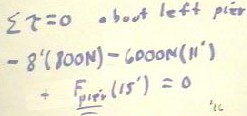 Σ τ = 0 about left pier
- 8'(800N) - 6000N(11')
+ F pier (15') = 0